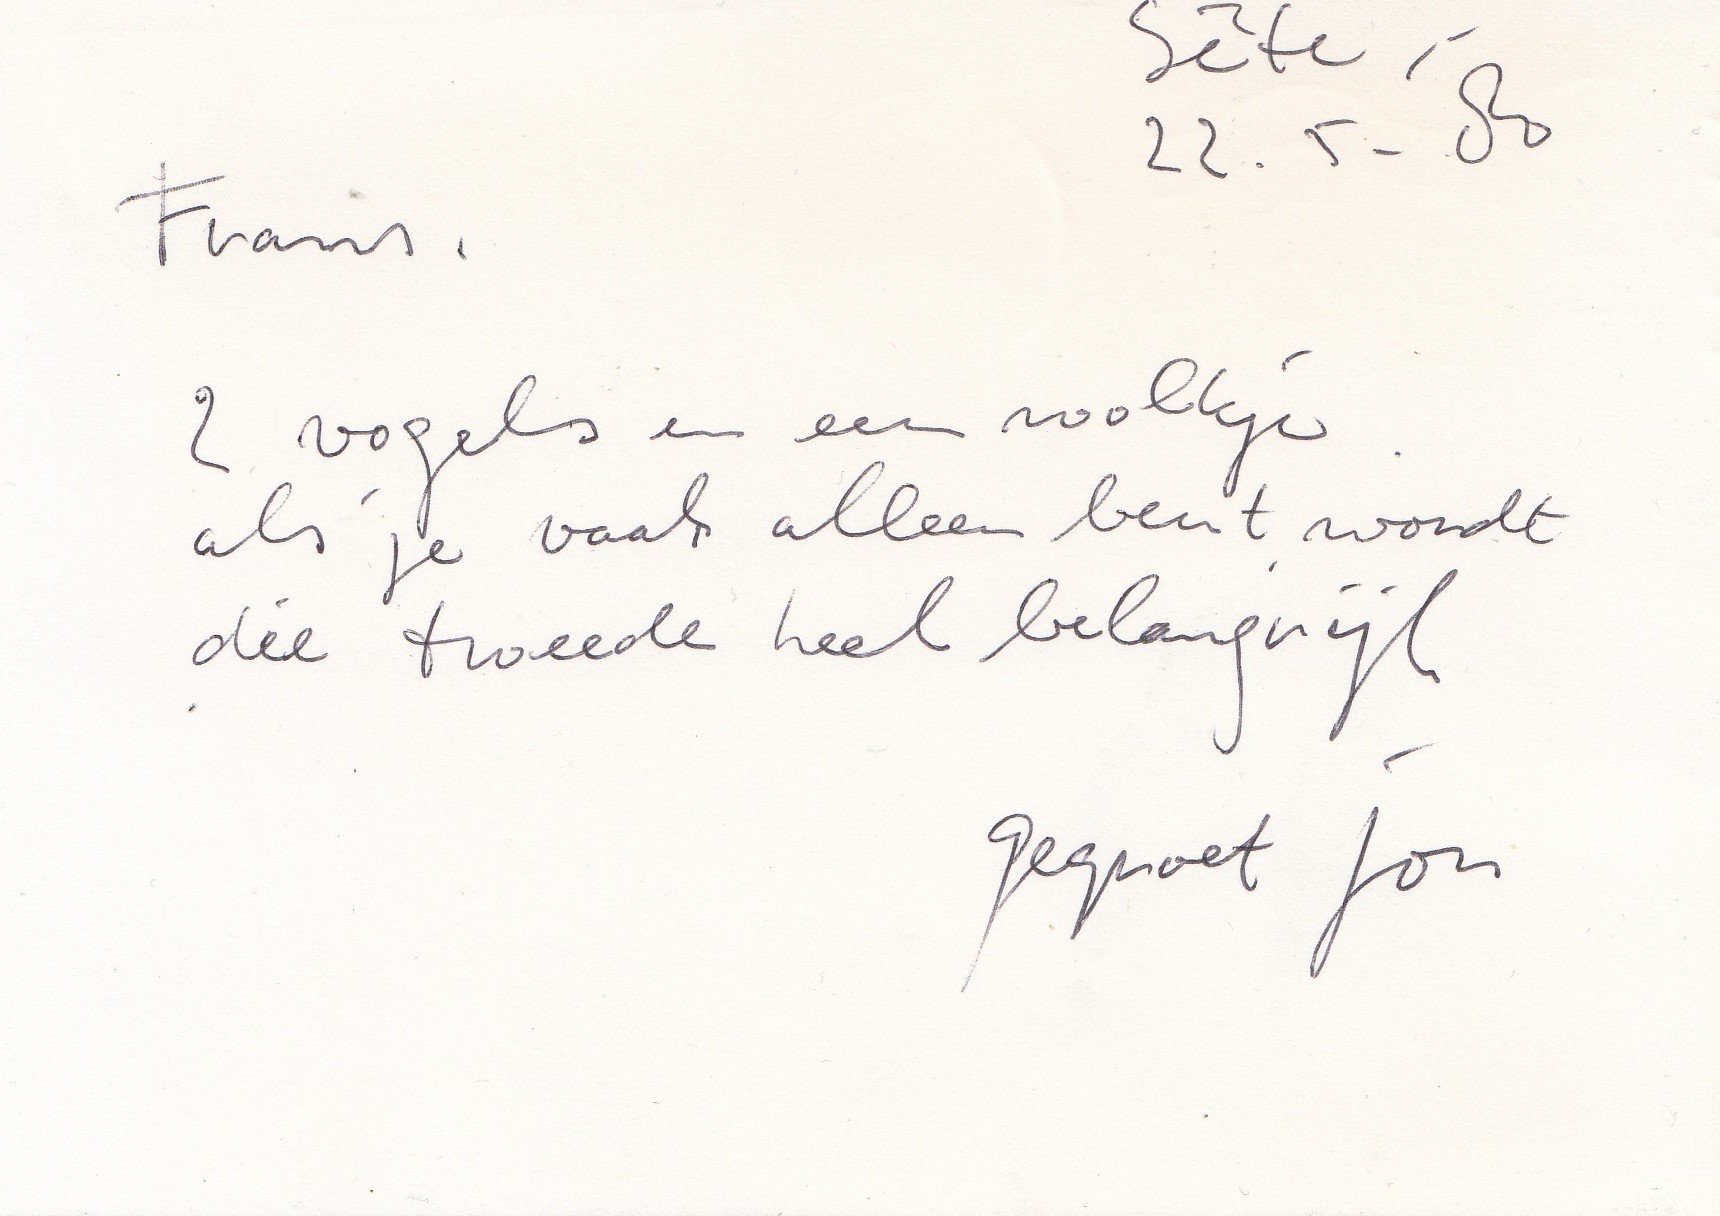 Sète,
22.5-80
Frans.
2 vogels en een wolkje
als je vaak alleen bent, wordt
die tweede heel belangrijk
gegroet jon